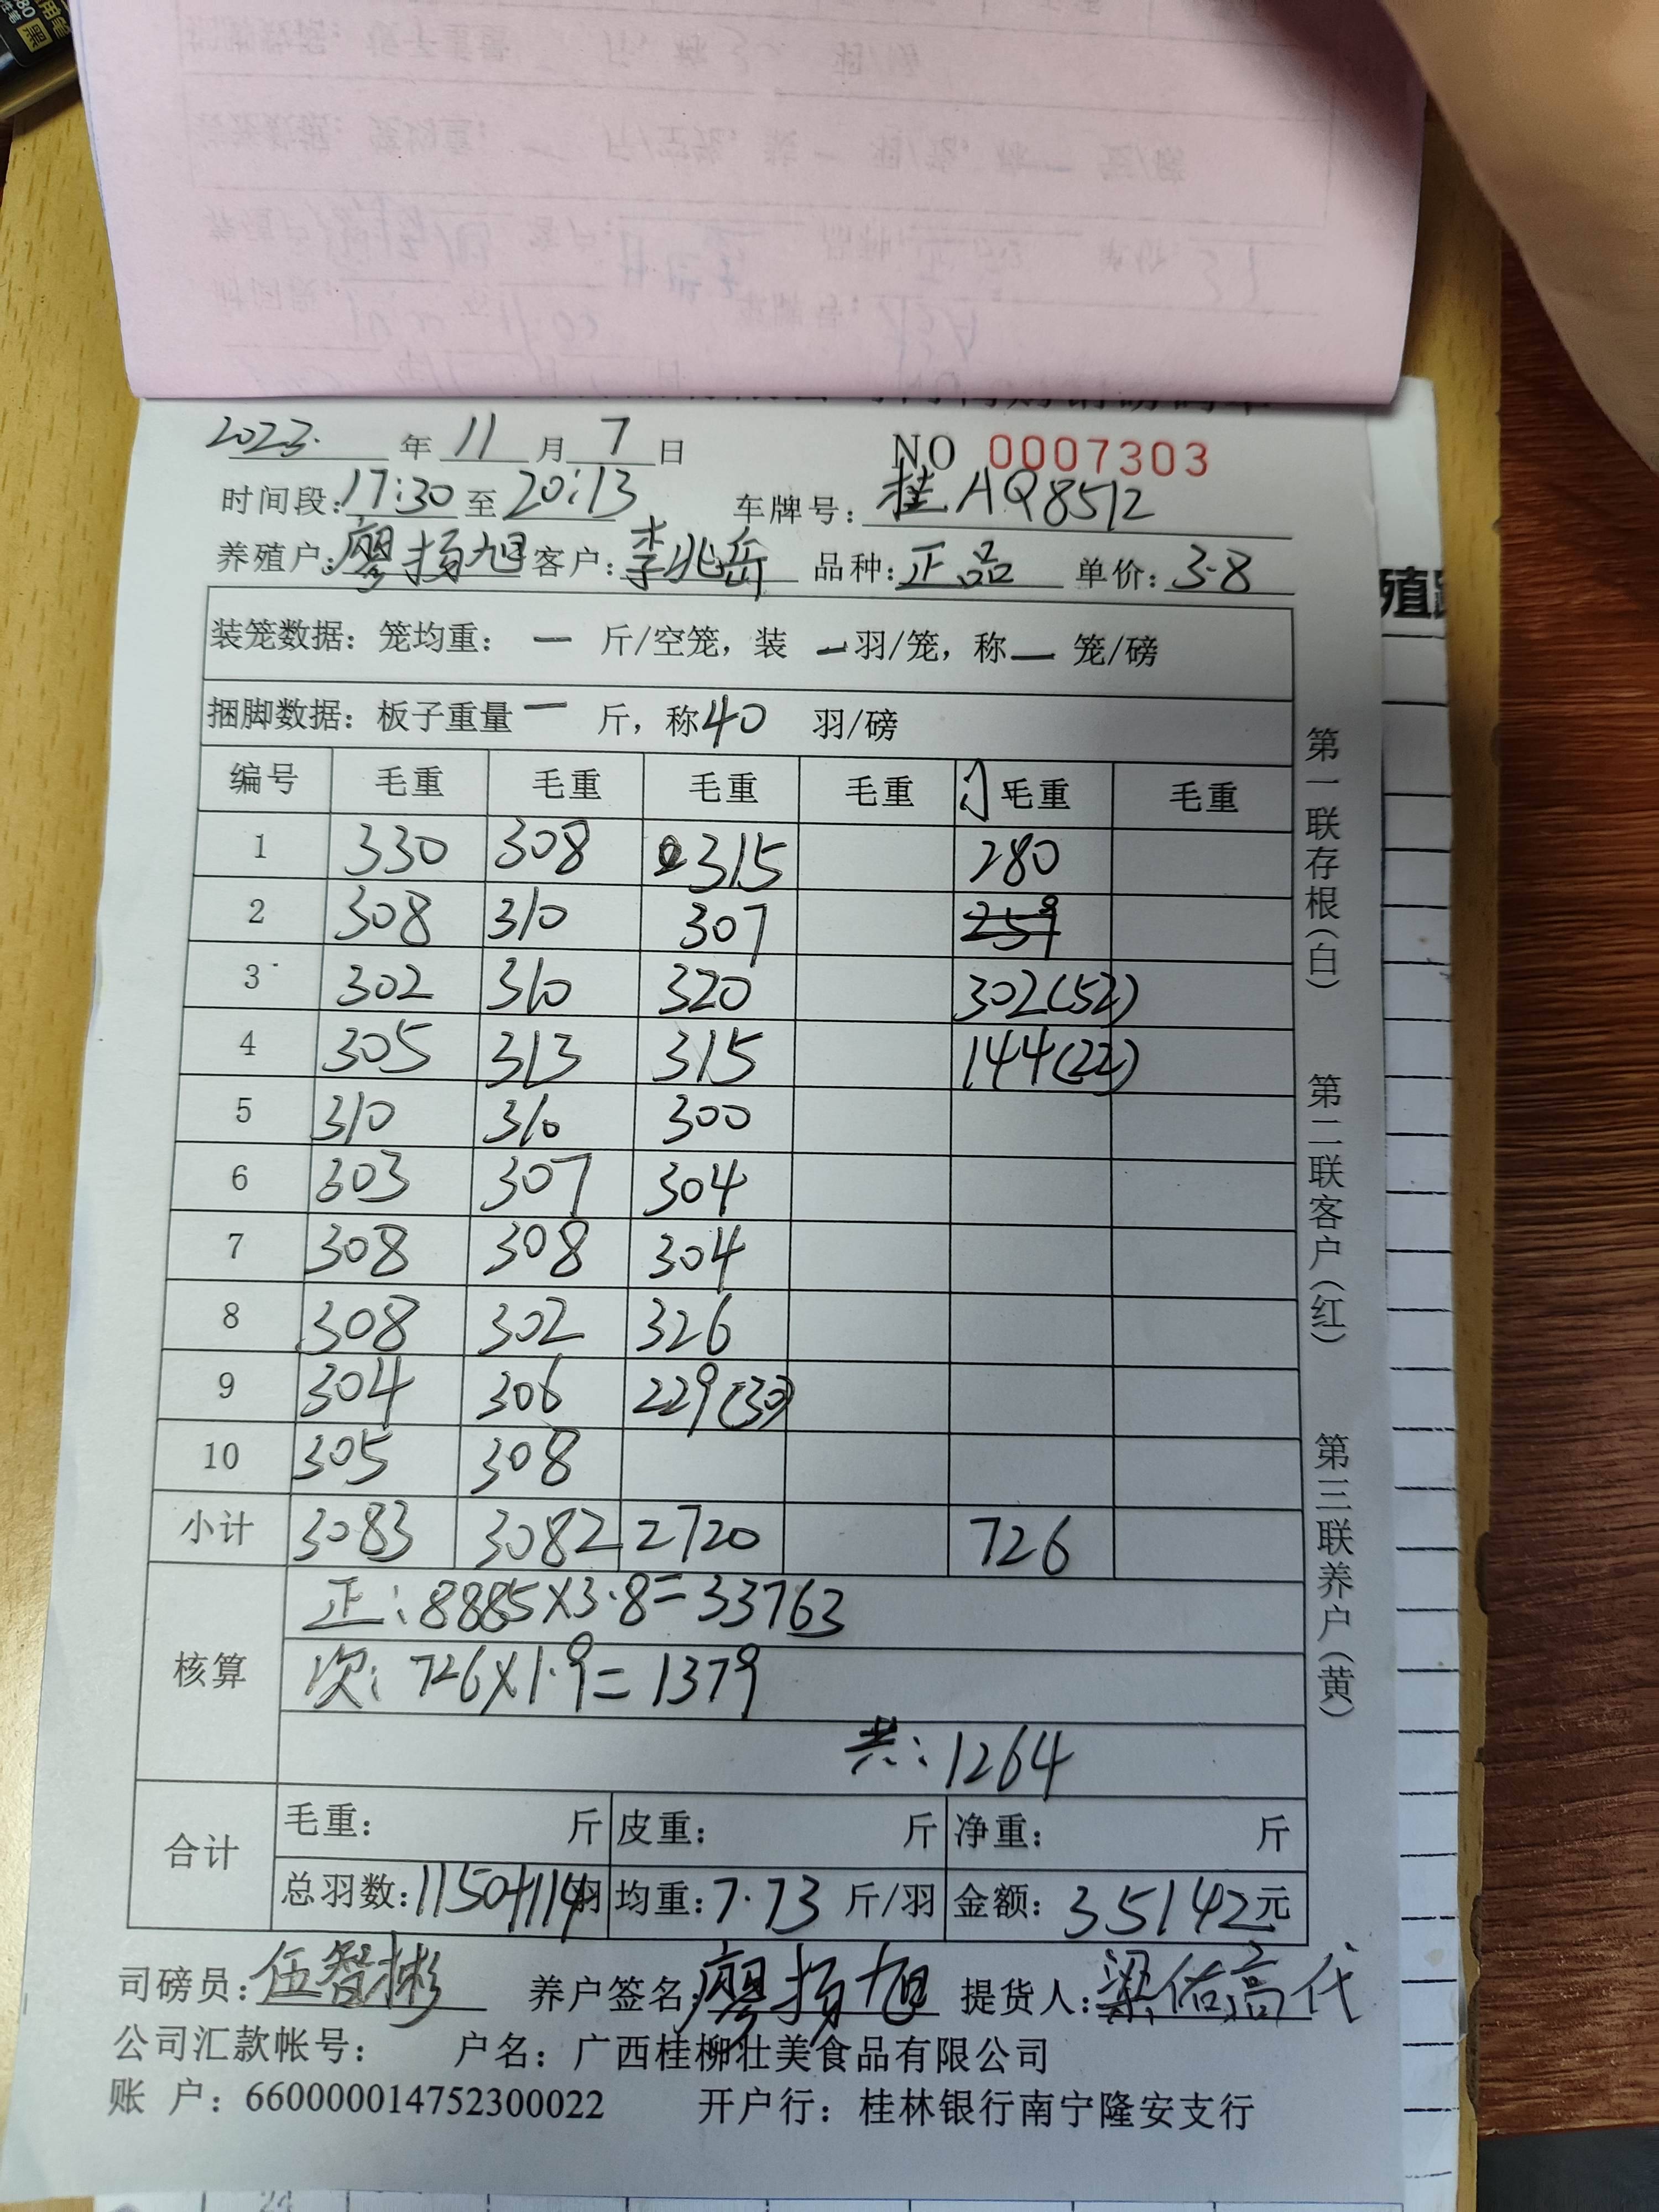 2023. 年 11 月 7 日 NO 0007303
时间段: 17:30 至 20:13 车牌号: 桂AQ8512
养殖户: 廖扬旭 客户: 李兆岳 品种: 正品 单价: 3.8
装笼数据: 笼均重: — 斤/空笼, 装 — 羽/笼, 称 — 笼/磅
捆脚数据: 板子重量 — 斤, 称 40 羽/磅
编号 毛重 毛重 毛重 毛重 毛重 毛重
1 330 308 315 280
2 308 310 307 259
3 302 310 320 302(52)
4 305 313 315 144(22)
5 310 310 300
6 303 307 304
7 308 308 304
8 308 302 326
9 304 306 229(30)
10 305 308
小计 3083 3082 2720 726
核算
正: 8885×3.8=33763
次: 726×1.9=1379
共: 1264
合计
毛重: 斤 皮重: 斤 净重: 斤
总羽数: 1150+114羽 均重: 7.73 斤/羽 金额: 35142元
司磅员: 伍智彬 养户签名: 廖扬旭 提货人: 梁佑高代
公司汇款帐号: 户名: 广西桂柳壮美食品有限公司
账 户: 660000014752300022 开户行: 桂林银行南宁隆安支行
第一联存根(白)
第二联客户(红)
第三联养户(黄)
殖
24